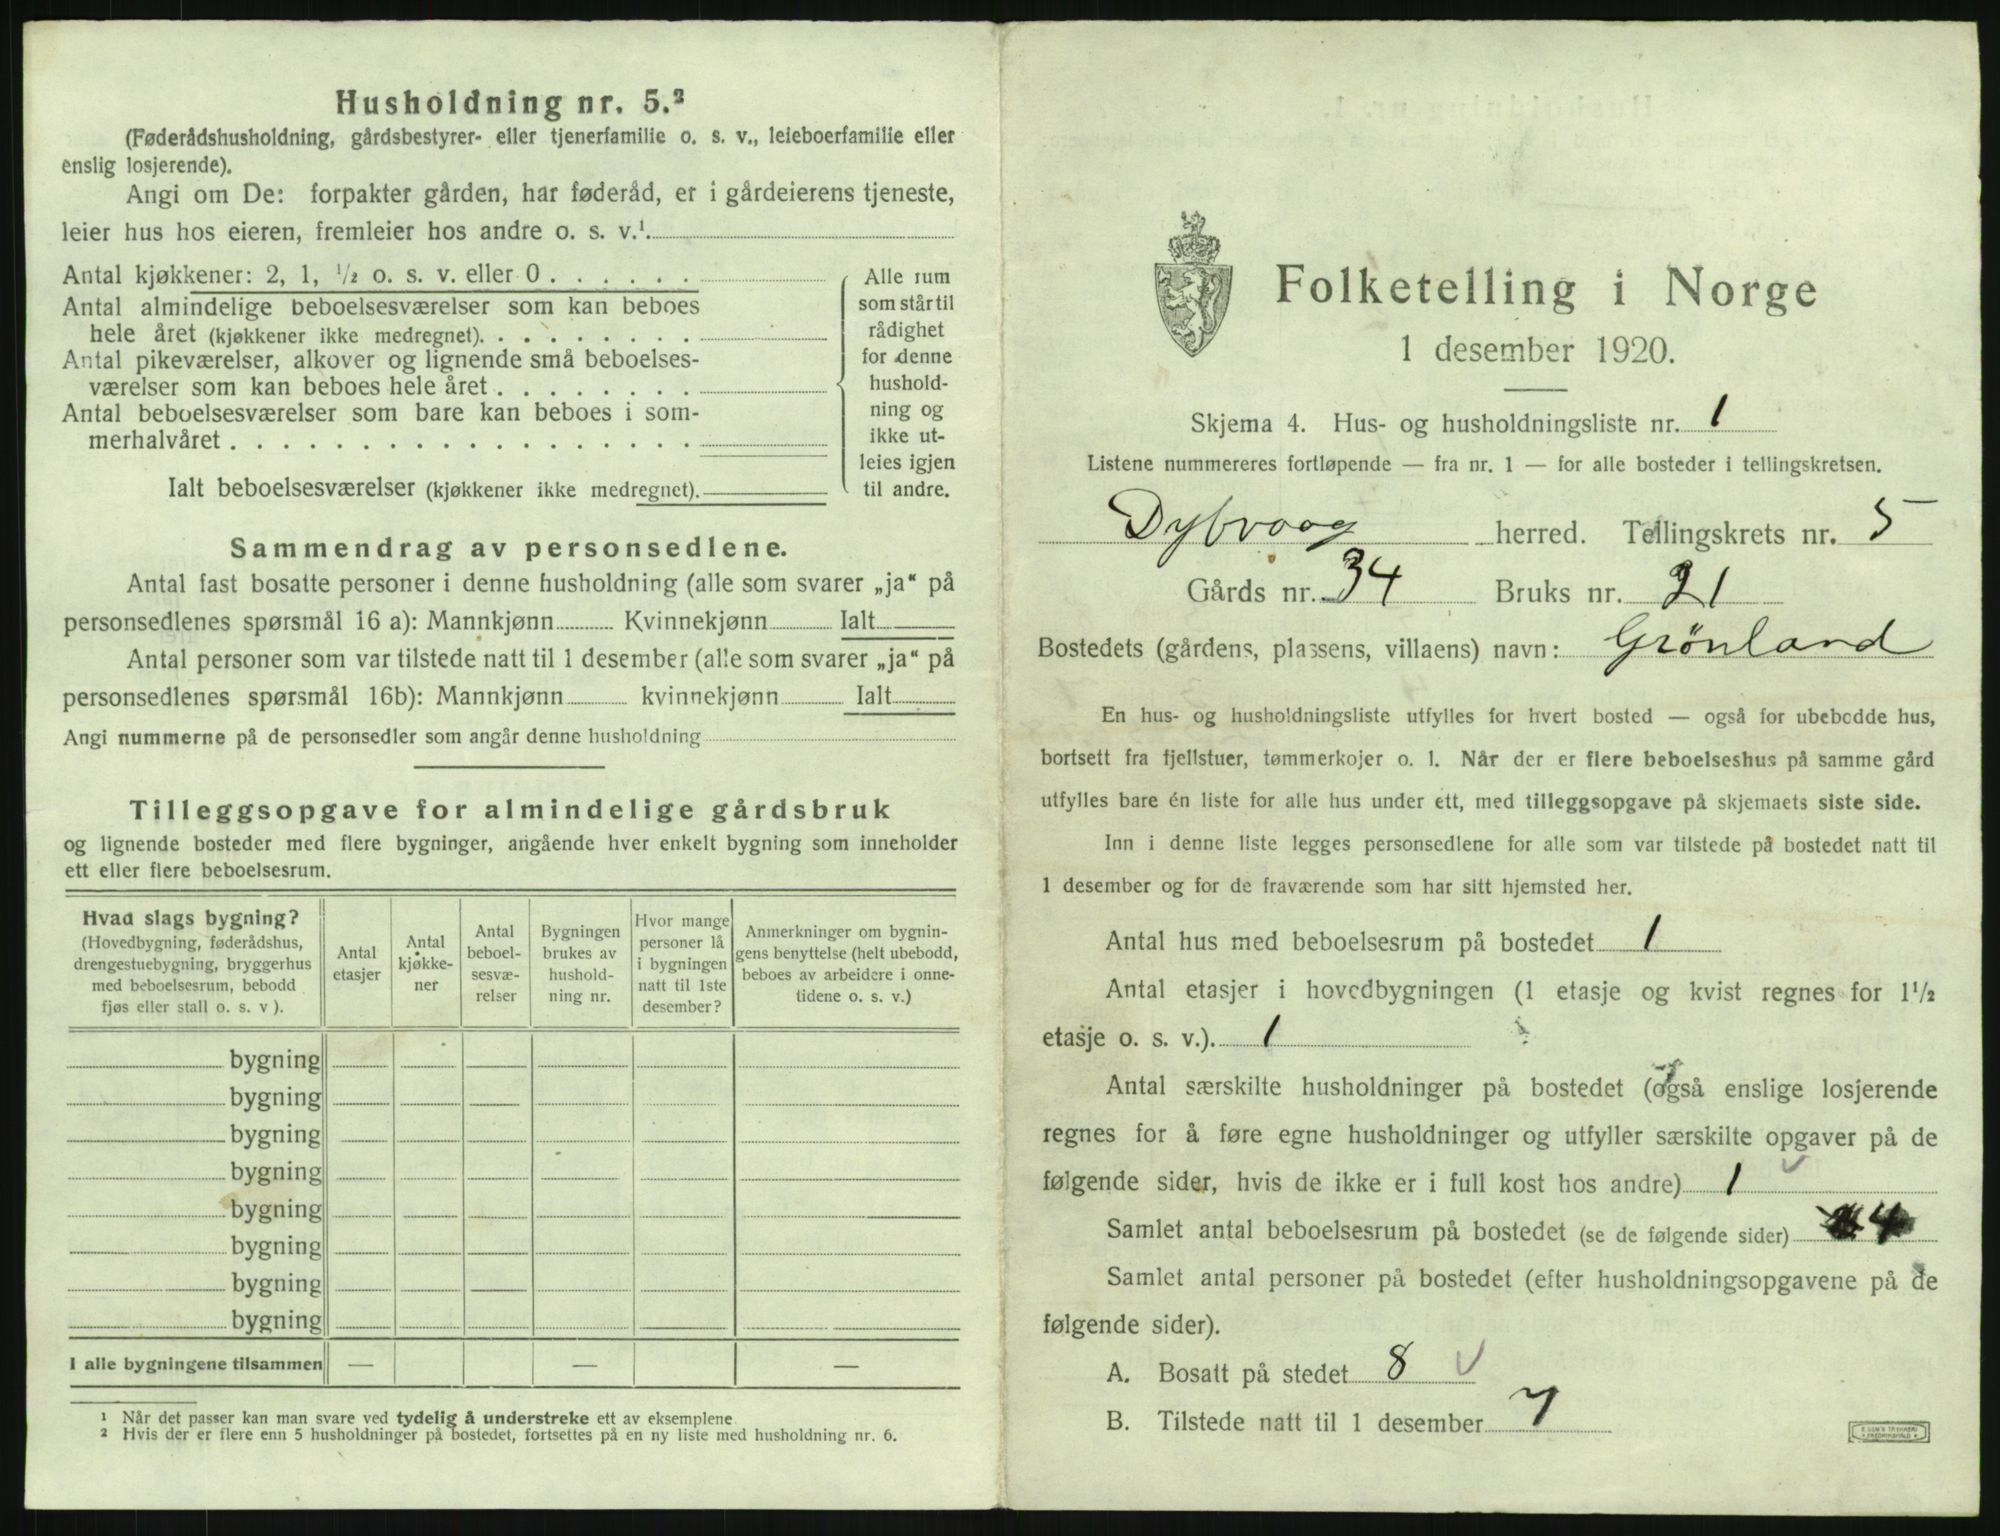 Husholdning nr. 5.²
(Føderådshusholdning, gårdsbestyrer- eller tjenerfamilie o. s. v., leieboerfamilie eller
enslig losjerende).
Angi om De: forpakter gården, har føderåd, er i gårdeierens tjeneste,
leier hus hos eieren, fremleier hos andre o. s. v.¹
Antal kjøkkener: 2, 1, ½ o. s. v. eller 0 . . . . . .
Antal almindelige beboelsesværelser som kan beboes
hele året (kjøkkener ikke medregnet). . . . . . . . .
Antal pikeværelser, alkover og lignende små beboelses-
værelser som kan beboes hele året . . . . . . . .
Antal beboelsesværelser som bare kan beboes i som-
merhalvåret . . . . . . . . . . . . . . . . . .
Ialt beboelsesværelser (kjøkkener ikke medregnet).
Alle rum
som står til
rådighet
for denne
hushold-
ning og
ikke ut-
leies igjen
til andre.
Sammendrag av personsedlene.
Antal fast bosatte personer i denne husholdning (alle som svarer „ja“ på
personsedlenes spørsmål 16 a): Mannkjønn Kvinnekjønn Ialt
Antal personer som var tilstede natt til 1 desember (alle som svarer „ja“ på
personsedlenes spørsmål 16b): Mannkjønn kvinnekjønn Ialt
Angi nummerne på de personsedler som angår denne husholdning
Tilleggsopgave for almindelige gårdsbruk
og lignende bosteder med flere bygninger, angående hver enkelt bygning som inneholder
ett eller flere beboelsesrum.
Hvad slags bygning?
(Hovedbygning, føderådshus,
drengestuebygning, bryggerhus
med beboelsesrum, bebodd
fjøs eller stall o. s. v ).
Antal
etasjer
Antal
kjøkke-
ner
Antal
beboel-
sesvæ-
relser
Bygningen
brukes av
hushold-
ning nr.
Hvor mange
personer lå
i bygningen
natt til 1ste
desember?
Anmerkninger om bygnin-
gens benyttelse (helt ubebodd,
beboes av arbeidere i onne-
tidene o. s. v.)
bygning
bygning
bygning
bygning
bygning
bygning
bygning
bygning
I alle bygningene tilsammen — — —
¹ Når det passer kan man svare ved tydelig å understreke ett av eksemplene
² Hvis der er flere enn 5 husholdninger på bostedet, fortsettes på en ny liste med husholdning nr. 6.
Folketelling i Norge
1 desember 1920.
Skjema 4. Hus- og husholdningsliste nr. 1
Listene nummereres fortløpende — fra nr. 1 — for alle bosteder i tellingskretsen.
Dybvaag herred. Tellingskrets nr. 5
Gårds nr. 34 Bruks nr. 21
Bostedets (gårdens, plassens, villaens) navn: Grönland
En hus- og husholdningsliste utfylles for hvert bosted — også for ubebodde hus,
bortsett fra fjellstuer, tømmerkojer o. l. Når der er flere beboelseshus på samme gård
utfylles bare én liste for alle hus under ett, med tilleggsopgave på skjemaets siste side.
Inn i denne liste legges personsedlene for alle som var tilstede på bostedet natt til
1 desember og for de fraværende som har sitt hjemsted her.
Antal hus med beboelsesrum på bostedet 1
Antal etasjer i hovedbygningen (1 etasje og kvist regnes for 1½
etasje o. s. v.). 1
Antal særskilte husholdninger på bostedet (også enslige losjerende
regnes for å føre egne husholdninger og utfyller særskilte opgaver på de
følgende sider, hvis de ikke er i full kost hos andre) 1
Samlet antal beboelsesrum på bostedet (se de følgende sider) 4
Samlet antal personer på bostedet (efter husholdningsopgavene på de
følgende sider).
A. Bosatt på stedet 8
B. Tilstede natt til 1 desember 7